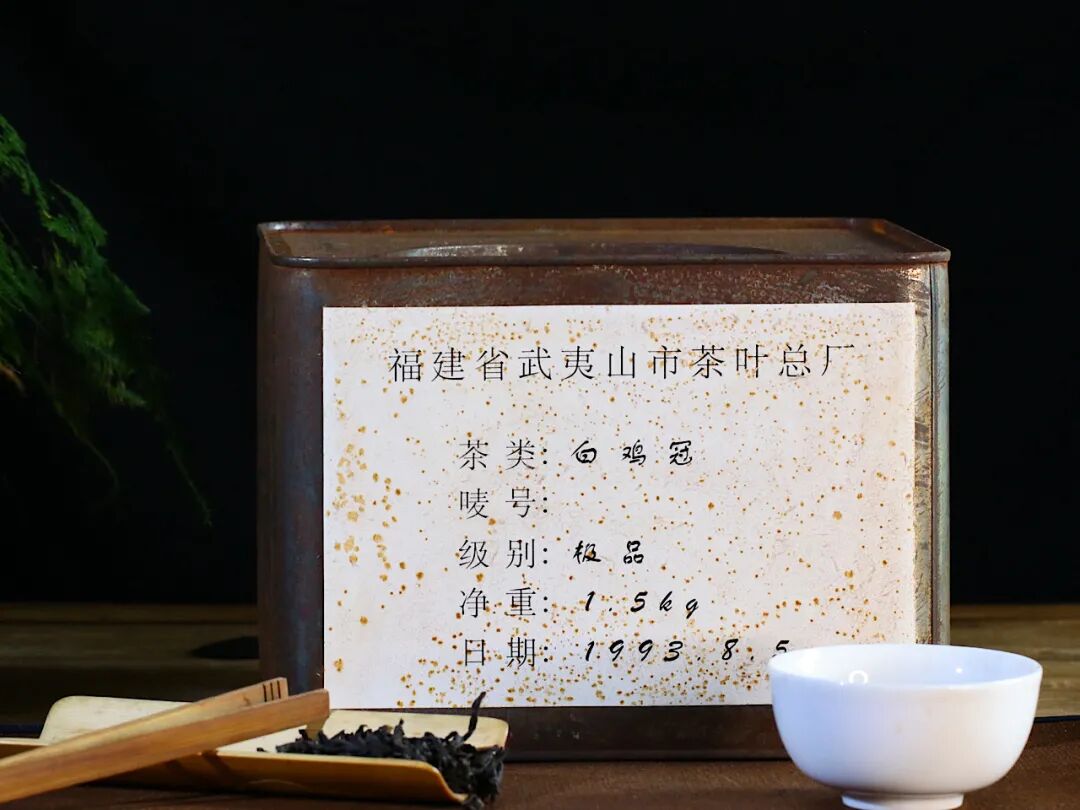 福建省武夷山市茶叶总厂
茶类：白鸡冠
唛号：
级别：极品
净重：1.5kg
日期：1993.8.5